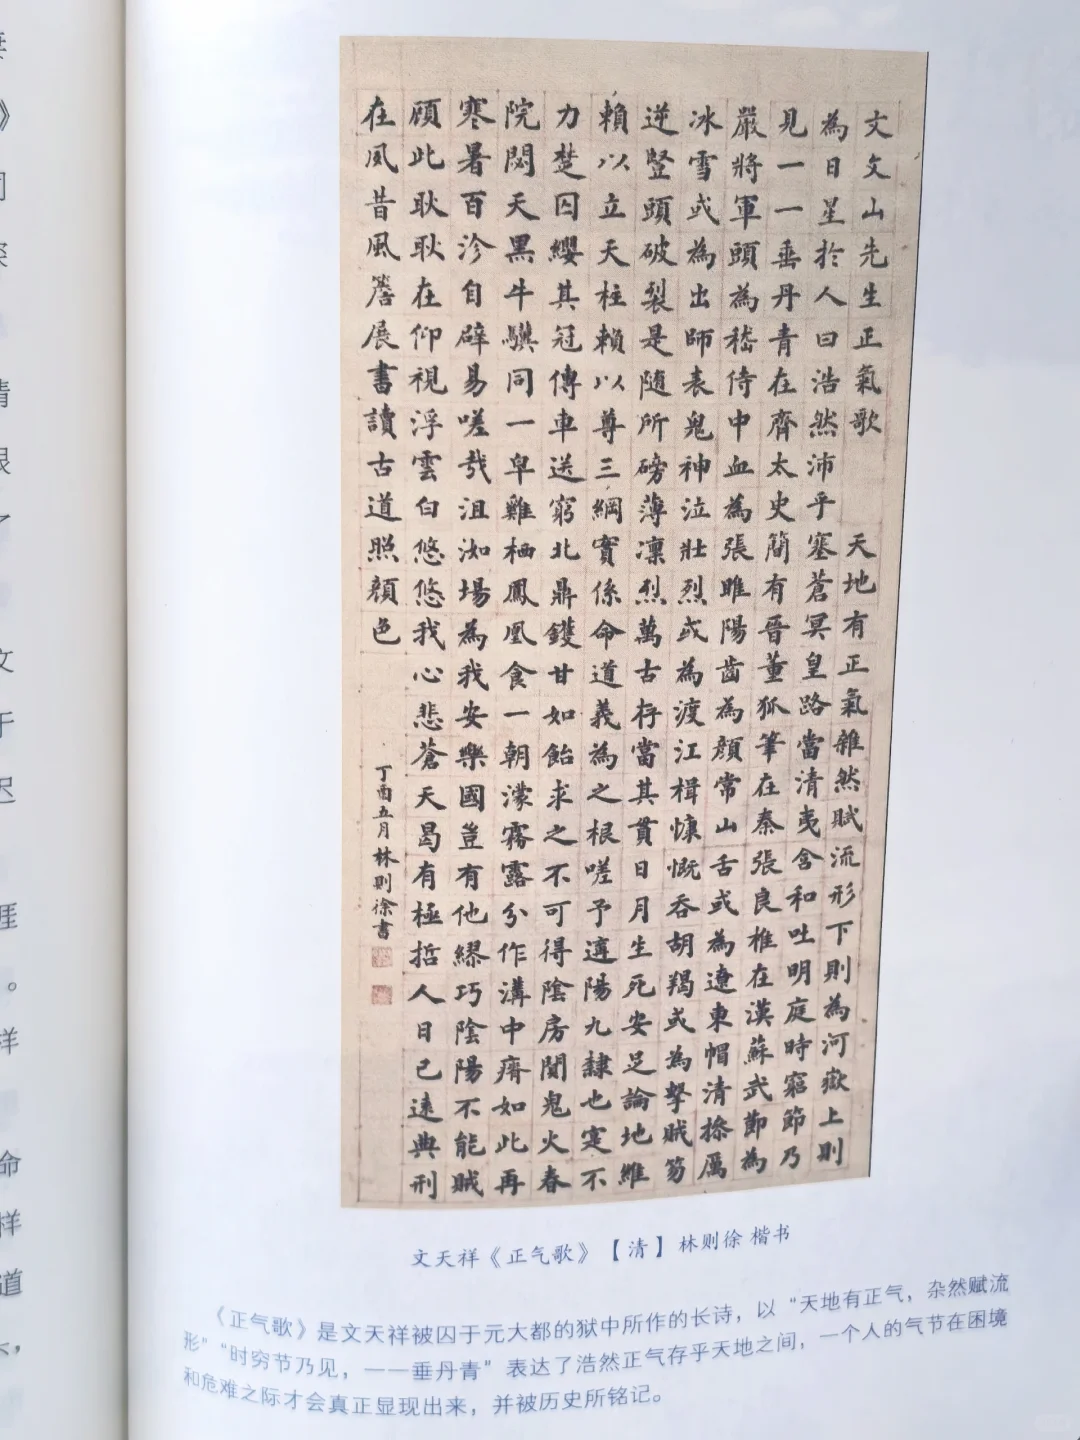 文文山先生正氣歌 天地有正氣雜然賦流形下則為河嶽上則
為日星於人曰浩然沛乎塞蒼冥皇路當清夷含和吐明庭時窮節乃
見一一垂丹青在齊太史簡有晉董狐筆在秦張良椎在漢蘇武節為
嚴將軍頭為嵇侍中血為張睢陽齒為顏常山舌或為遼東帽清操厲
冰雪或為出師表鬼神泣壯烈或為渡江楫慷慨吞胡羯或為擊賊笏
逆豎頭破裂是隨所磅薄凜烈萬古存當其貫日月生死安足論地維
賴以立天柱賴以尊三綱實係命道義為之根嗟予遘陽九隸也寔不
力楚囚纓其冠傳車送窮北鼎鑊甘如飴求之不可得陰房閴鬼火春
院閟天黑牛驥同一皁雞栖鳳凰食一朝濛霧露分作溝中瘠如此再
寒暑百沴自辟易嗟哉沮洳場為我安樂國豈有他繆巧陰陽不能賊
顧此耿耿在仰視浮雲白悠悠我心悲蒼天曷有極哲人日已遠典刑
在夙昔風簷展書讀古道照顏色
丁酉五月林則徐書
文天祥《正气歌》【清】林则徐 楷书
《正气歌》是文天祥被囚于元大都的狱中所作的长诗，以“天地有正气，杂然赋流
形”“时穷节乃见，一一垂丹青”表达了浩然正气存乎天地之间，一个人的气节在困境
和危难之际才会真正显现出来，并被历史所铭记。